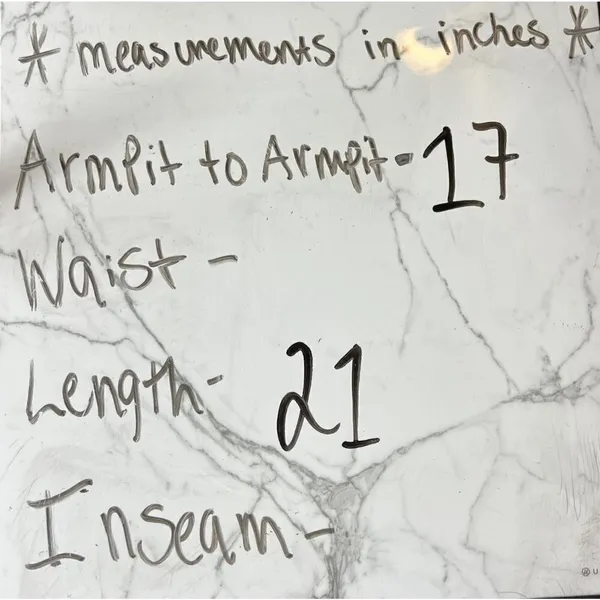 * measurements in inches *
Armpit to Armpit - 17
Waist -
Length - 21
Inseam -